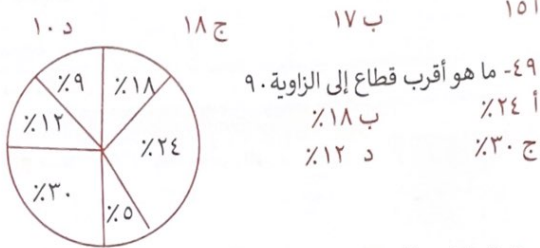 أ ١٥ ب ١٧ ج ١٨ د ١٠
٤٩- ما هو أقرب قطاع إلى الزاوية ٩٠
أ ٢٤٪ ب ١٨٪
ج ٣٠٪ د ١٢٪
٩٪ ١٨٪
١٢٪ ٢٤٪
٣٠٪ ٥٪